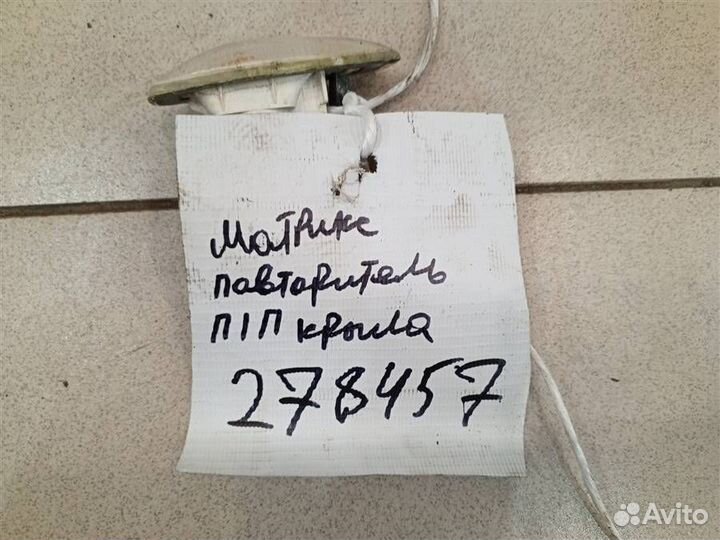 Матрикс
повторитель
П/П крыла
278457
Avito